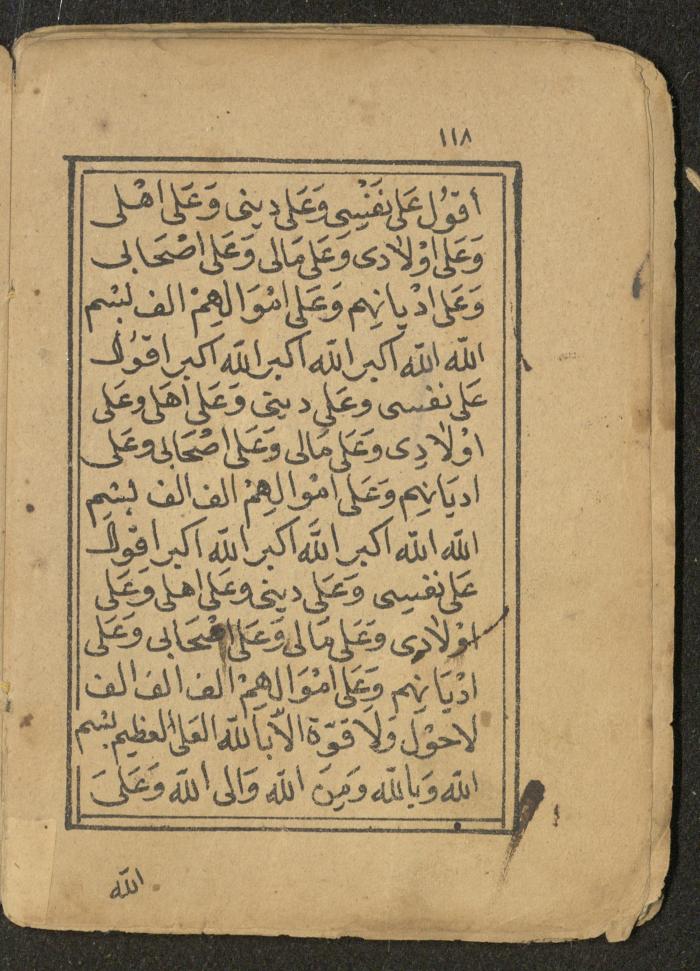 ١١٨
أقوُل عَلى نَفْسِى وَعَلى دينى وَعَلى اهْلى
وَعَلى اوْلادى وَعَلى مَالى وَعَلى اصْحَابى
وَعَلى ادْيانِهِم وَعَلى امْوَالِهِمْ الف بسْم
الله الله اكبر الله اكبر الله اكبر اقوُل
عَلى نفسى وعَلى دينى وَعَلى أهلى وعَلى
اوْلادِى وَعَلى مَالى وَعَلى اصْحَابى وعَلى
اديَانِهِم وَعَلى امْوالِهِمْ الف الف بسْمِ
الله الله اكبر الله اكبر الله اكبر اقوُل
عَلى نفسِى وَعَلى دينى وعَلى اهلى وَعَلى
اوْلادِى وَعَلى مَالى وَعَلى اصْحَابى وَعَلى
ادْيَانِهِم وَعَلى امْوَالِهِمْ الف الف الف
لاحَوْل وَلَا قوّة الّا باللّه العَلى العظيم بسْم
الله وَبالله وَمِنَ الله وَالى الله وَعَلىَ
الله